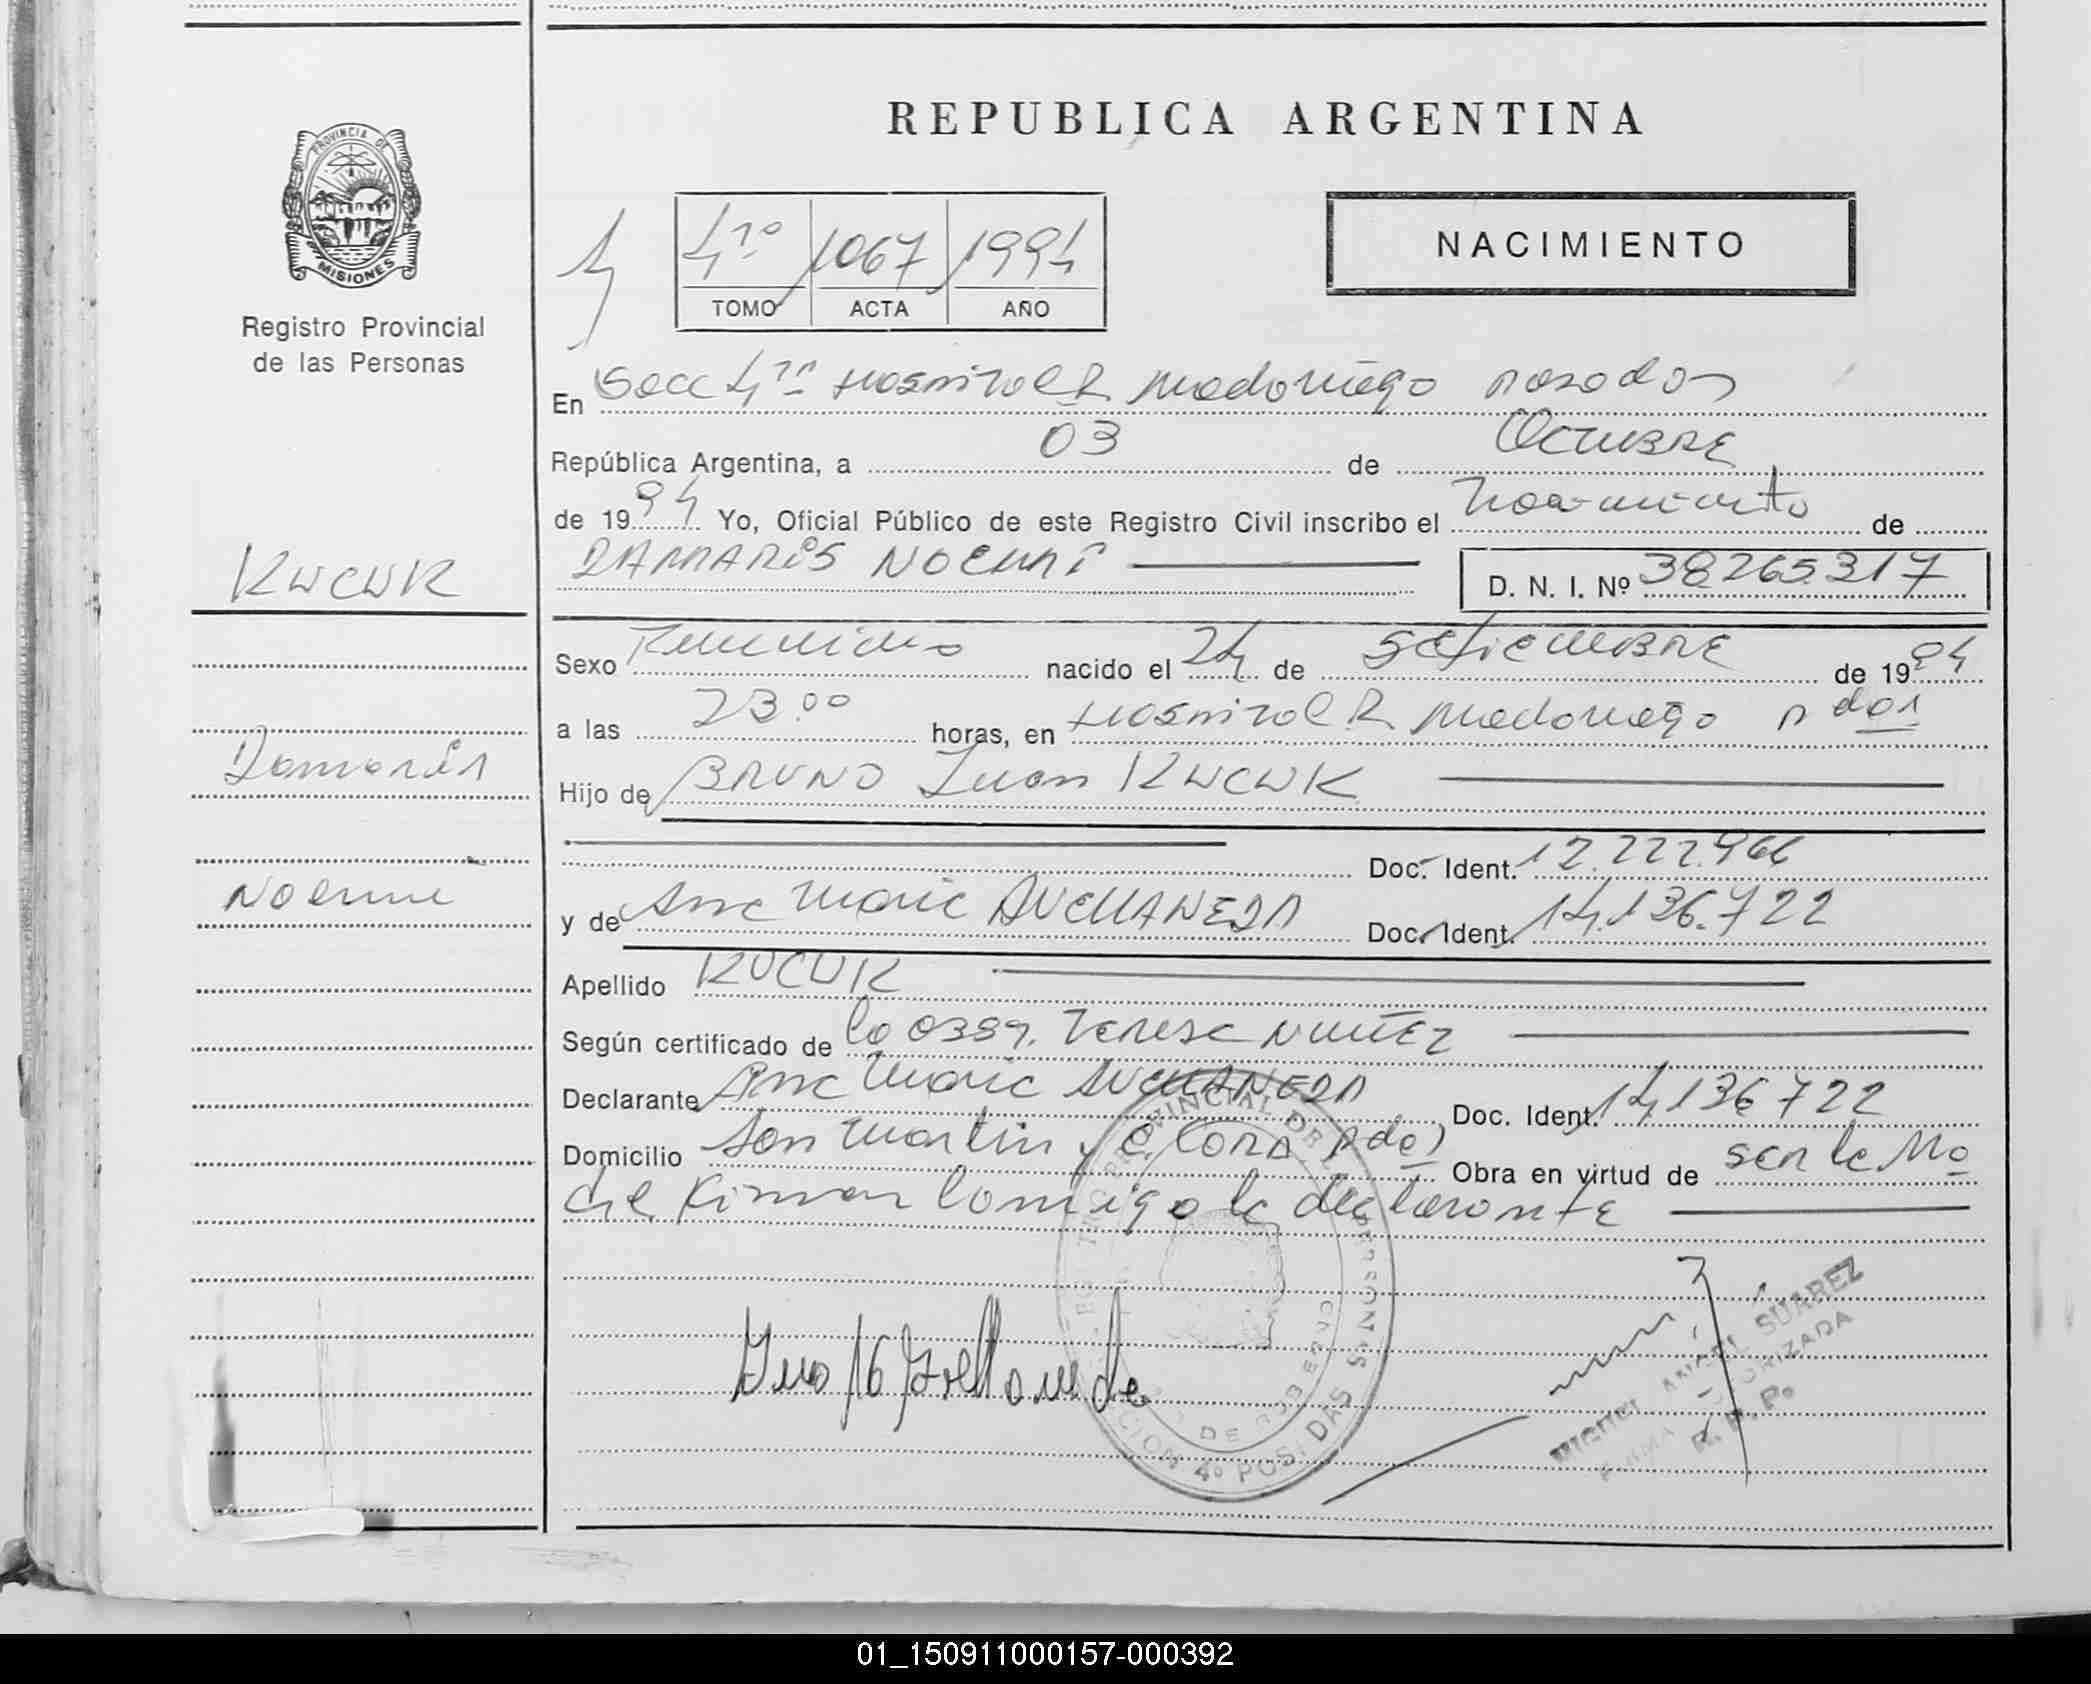 REPUBLICA ARGENTINA
PROVINCIA DE
MISIONES
Registro Provincial
de las Personas
4to 1067 1994
TOMO ACTA AÑO
NACIMIENTO
En Secc 4ta Hospital R Madariaga Posadas
República Argentina, a 03 de Octubre
de 1994 Yo, Oficial Público de este Registro Civil inscribo el Nacimiento de
DAMARIS NOEMI
D. N. I. Nº 38265317
KUCUK
Damaris
Noemi
Sexo Femenino nacido el 24 de Setiembre de 1994
a las 23.00 horas, en Hospital R Madariaga Pdas
Hijo de BRUNO Juan KUCUK
Doc. Ident. 12.222.966
y de Ana Maria AVELLANEDA Doc. Ident. 14.136.722
Apellido KUCUK
Según certificado de la Obst. Teresa NUÑEZ
Declarante Ana Maria AVELLANEDA Doc. Ident. 14.136722
Domicilio San Martin y Pdas) Obra en virtud de ser la Ma
dre Firman Conmigo la declarante
PROVINCIAL DE LAS PERSONAS
DE GOBIERNO
SECCION 4º POSADAS
MIGUEL ANGEL SUAREZ
FIRMA AUTORIZADA
R. P. P.
01_150911000157-000392